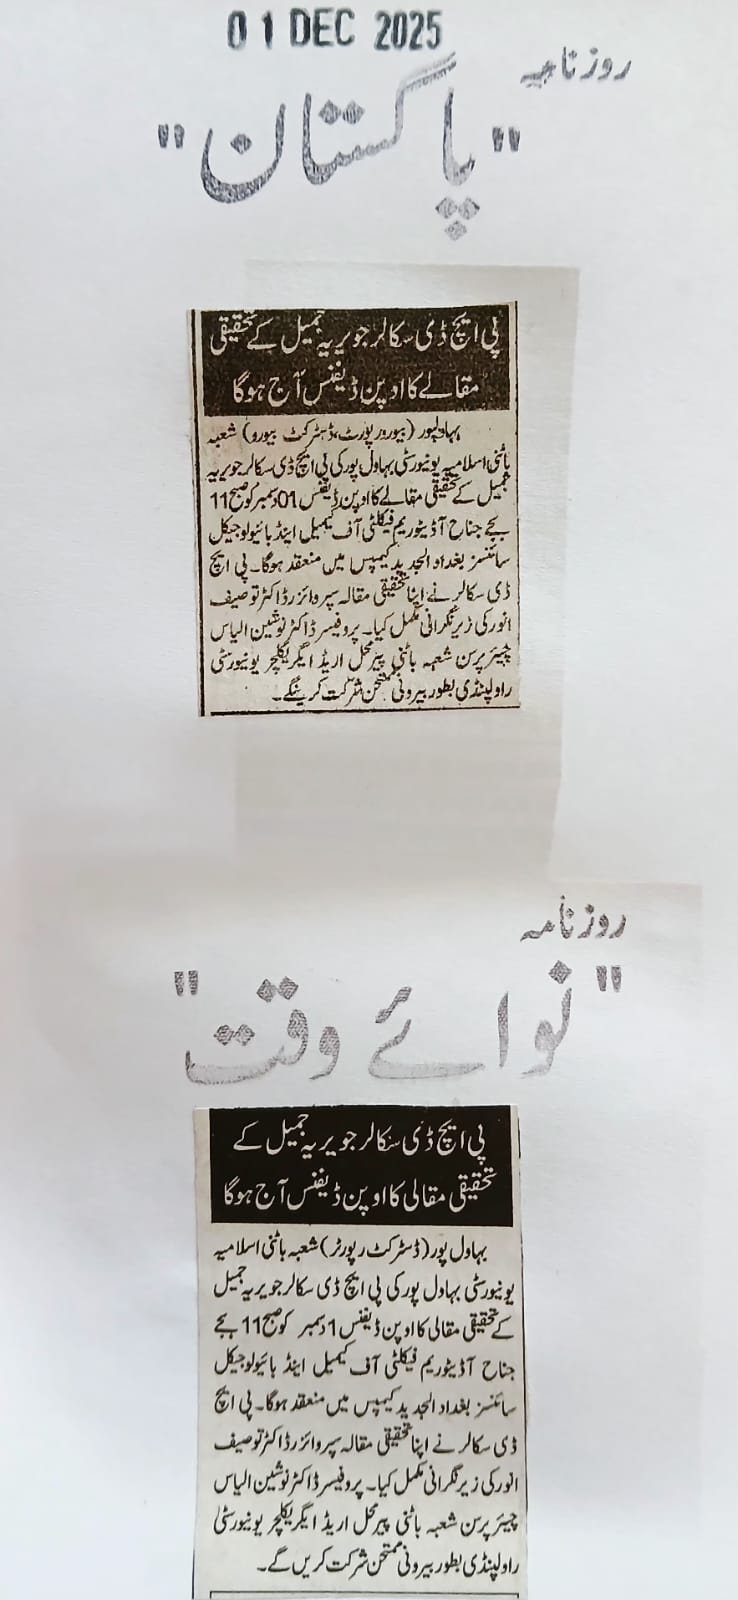 01 DEC 2025
روزنامہ
"پاکستان"
پی ایچ ڈی سکالر جویریہ جمیل کے تحقیقی
مقالے کا اوپن ڈیفنس آج ہوگا
بہاولپور (بیورورپورٹ،ڈسٹرکٹ بیورو) شعبہ
باٹنی اسلامیہ یونیورسٹی بہاول پور کی پی ایچ ڈی سکالر جویریہ
جمیل کے تحقیقی مقالے کا اوپن ڈیفنس 01 دسمبر کو صبح 11
بجے جناح آڈیٹوریم فیکلٹی آف کیمیل اینڈ بائیولوجیکل
سائنسز بغداد الجدید کیمپس میں منعقد ہوگا۔ پی ایچ
ڈی سکالر نے اپنا تحقیقی مقالہ سپروائزر ڈاکٹر توصیف
انور کی زیر نگرانی مکمل کیا۔ پروفیسر ڈاکٹر نوشین الیاس
چیئر پرسن شعبہ باٹنی پیر محل اریڈ ایگریکلچر یونیورسٹی
راولپنڈی بطور بیرونی ممتحن شرکت کرینگے۔
روزنامہ
"نوائے وقت"
پی ایچ ڈی سکالر جویریہ جمیل کے
تحقیقی مقالی کا اوپن ڈیفنس آج ہوگا
بہاول پور (ڈسٹرکٹ رپورٹر) شعبہ باٹنی اسلامیہ
یونیورسٹی بہاول پور کی پی ایچ ڈی سکالر جویریہ جمیل
کے تحقیقی مقالی کا اوپن ڈیفنس 1 دسمبر کو صبح 11 بجے
جناح آڈیٹوریم فیکلٹی آف کیمیل اینڈ بائیولوجیکل
سائنسز بغداد الجدید کیمپس میں منعقد ہوگا۔ پی ایچ
ڈی سکالر نے اپنا تحقیقی مقالہ سپروائزر ڈاکٹر توصیف
انور کی زیر نگرانی مکمل کیا۔ پروفیسر ڈاکٹر نوشین الیاس
چیئر پرسن شعبہ باٹنی پیر محل اریڈ ایگریکلچر یونیورسٹی
راولپنڈی بطور بیرونی ممتحن شرکت کریں گے۔